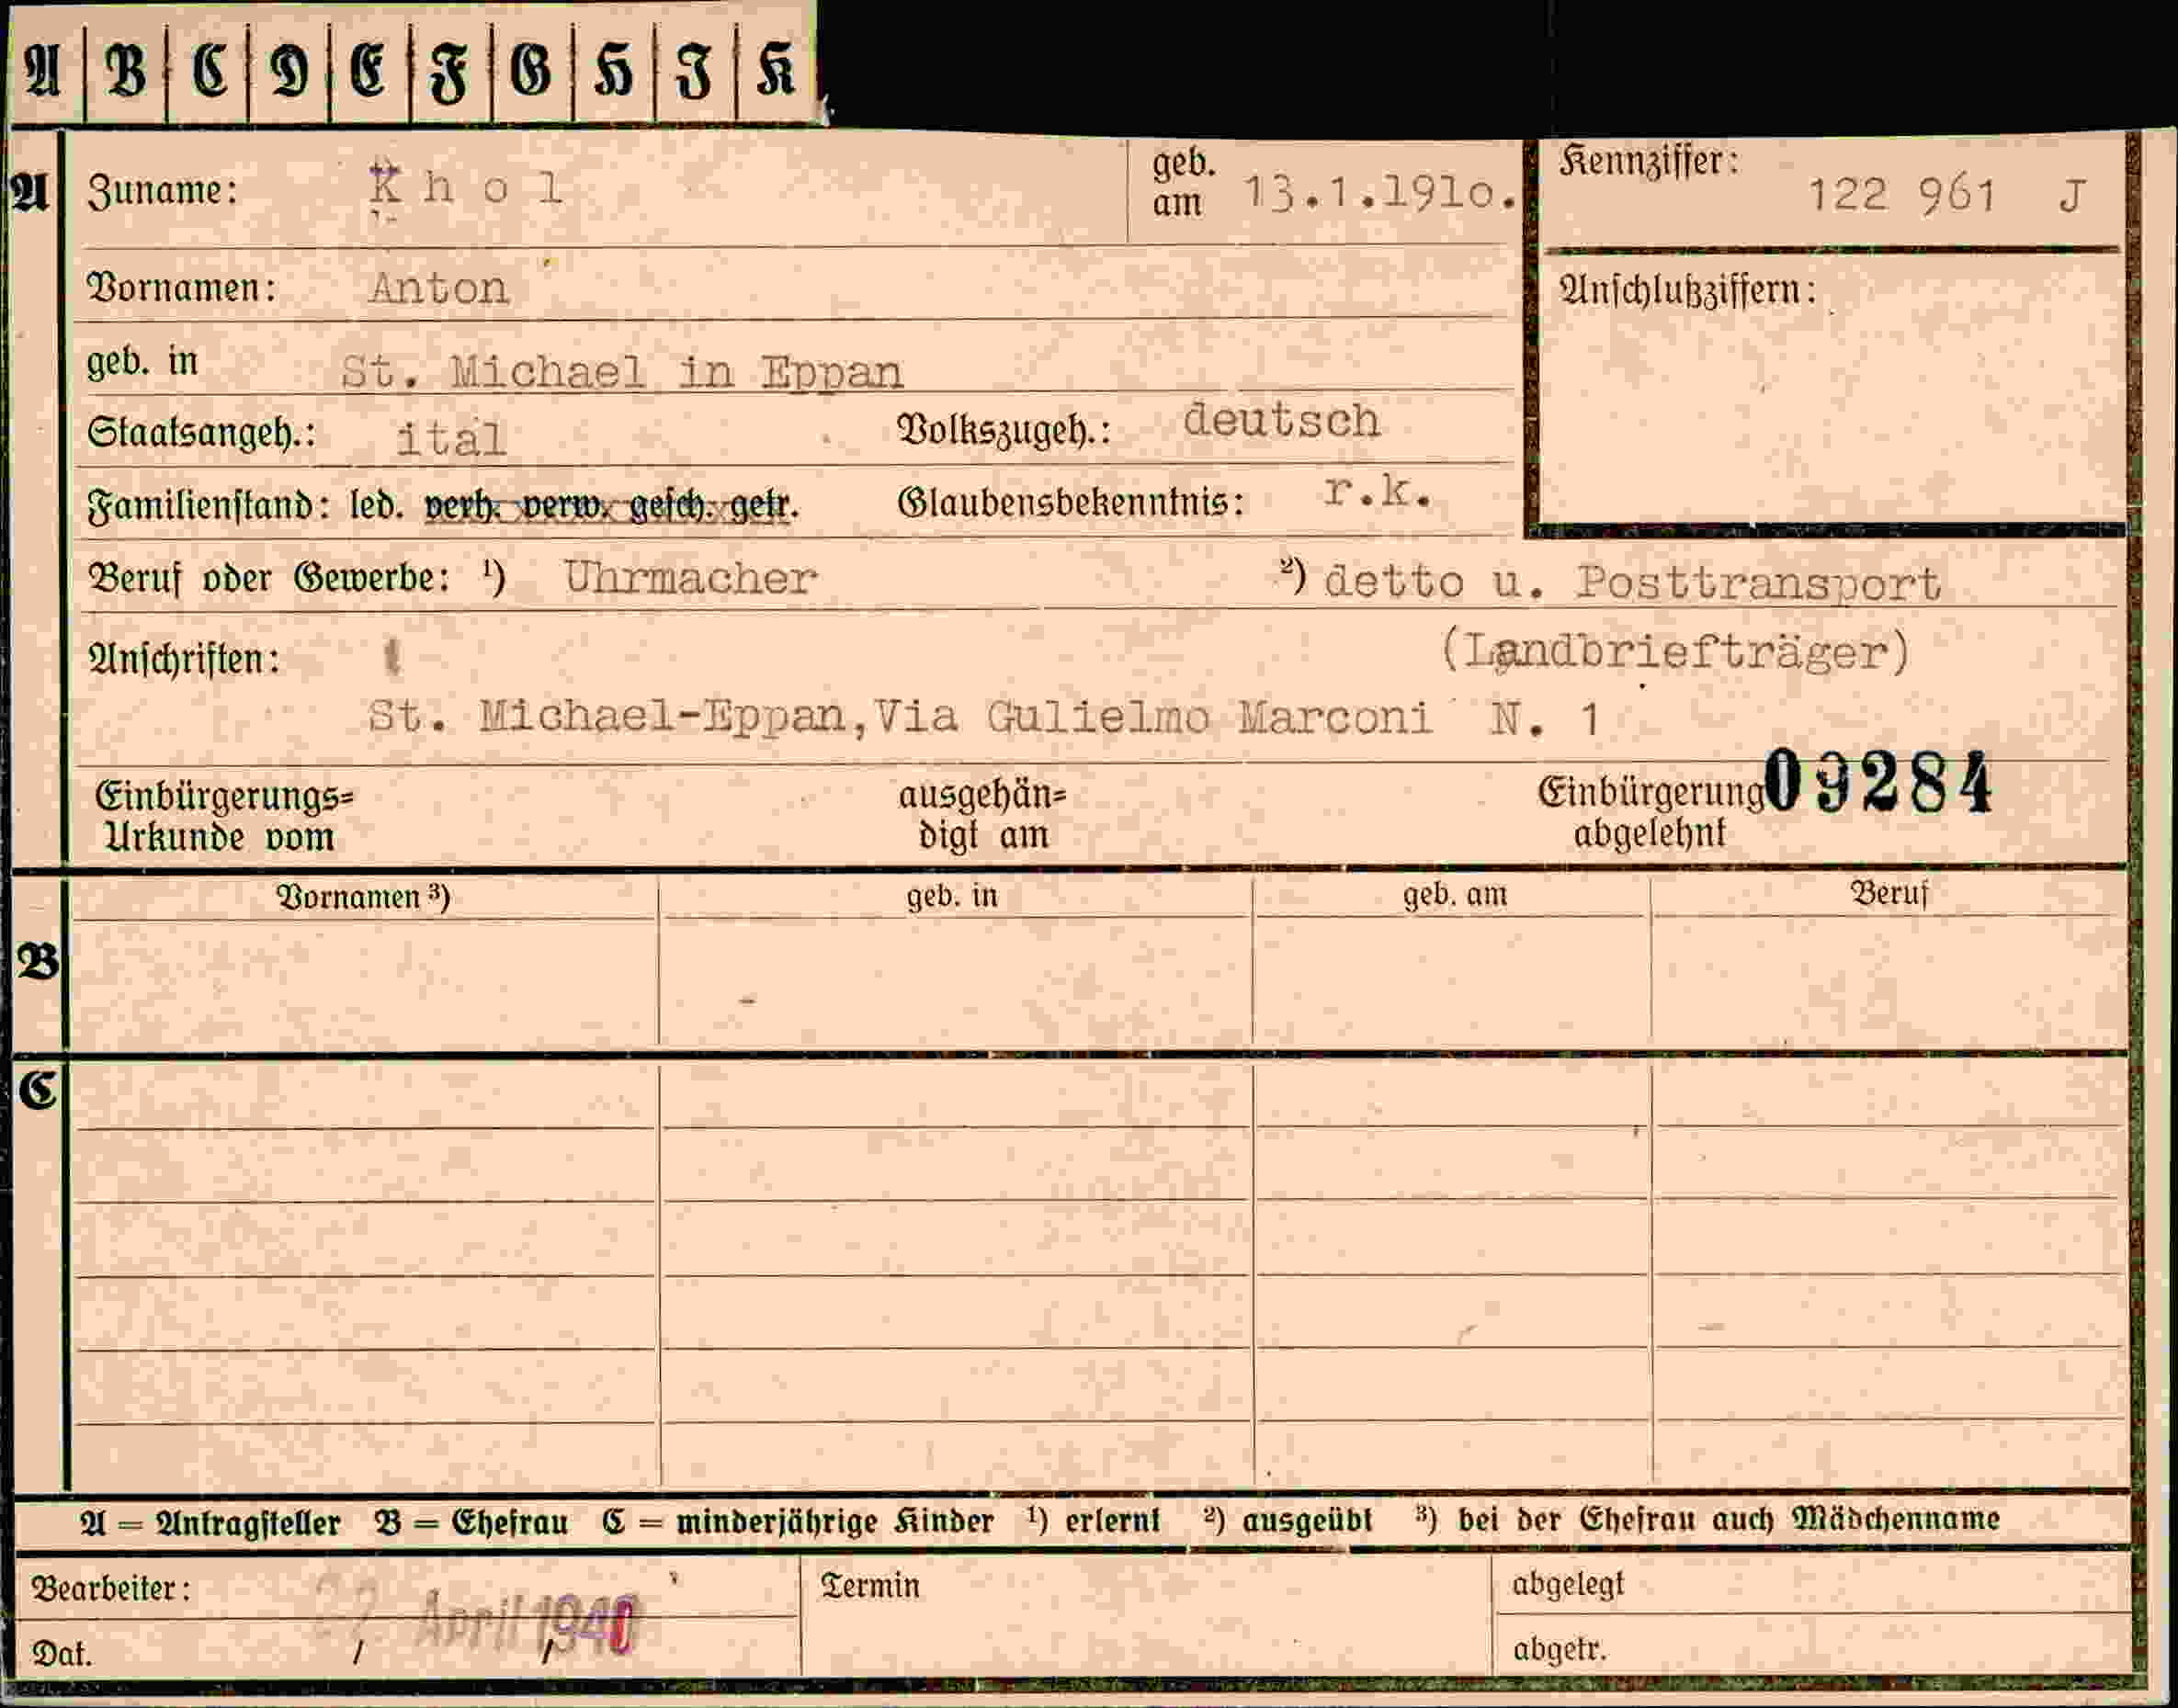 A B C D E F G H J K
A Zuname: Khol geb. am 13.1.191o. Kennziffer: 122 961 J
Vornamen: Anton Anschlußziffern:
geb. in St. Michael in Eppan
Staatsangeh.: ital Volkszugeh.: deutsch
Familienstand: led. verh. verw. gesch. getr. Glaubensbekenntnis: r.k.
Beruf oder Gewerbe: ¹) Uhrmacher ²) detto u. Posttransport
Anschriften: (Landbriefträger)
St. Michael-Eppan,Via Gulielmo Marconi N. 1
Einbürgerungs= ausgehän= Einbürgerung 09284
Urkunde vom digt am abgelehnt
Vornamen ³) geb. in geb. am Beruf
B
C
A = Antragsteller B = Ehefrau C = minderjährige Kinder ¹) erlernt ²) ausgeübt ³) bei der Ehefrau auch Mädchenname
Bearbeiter: Termin abgelegt
April 1940
Dat. abgetr.